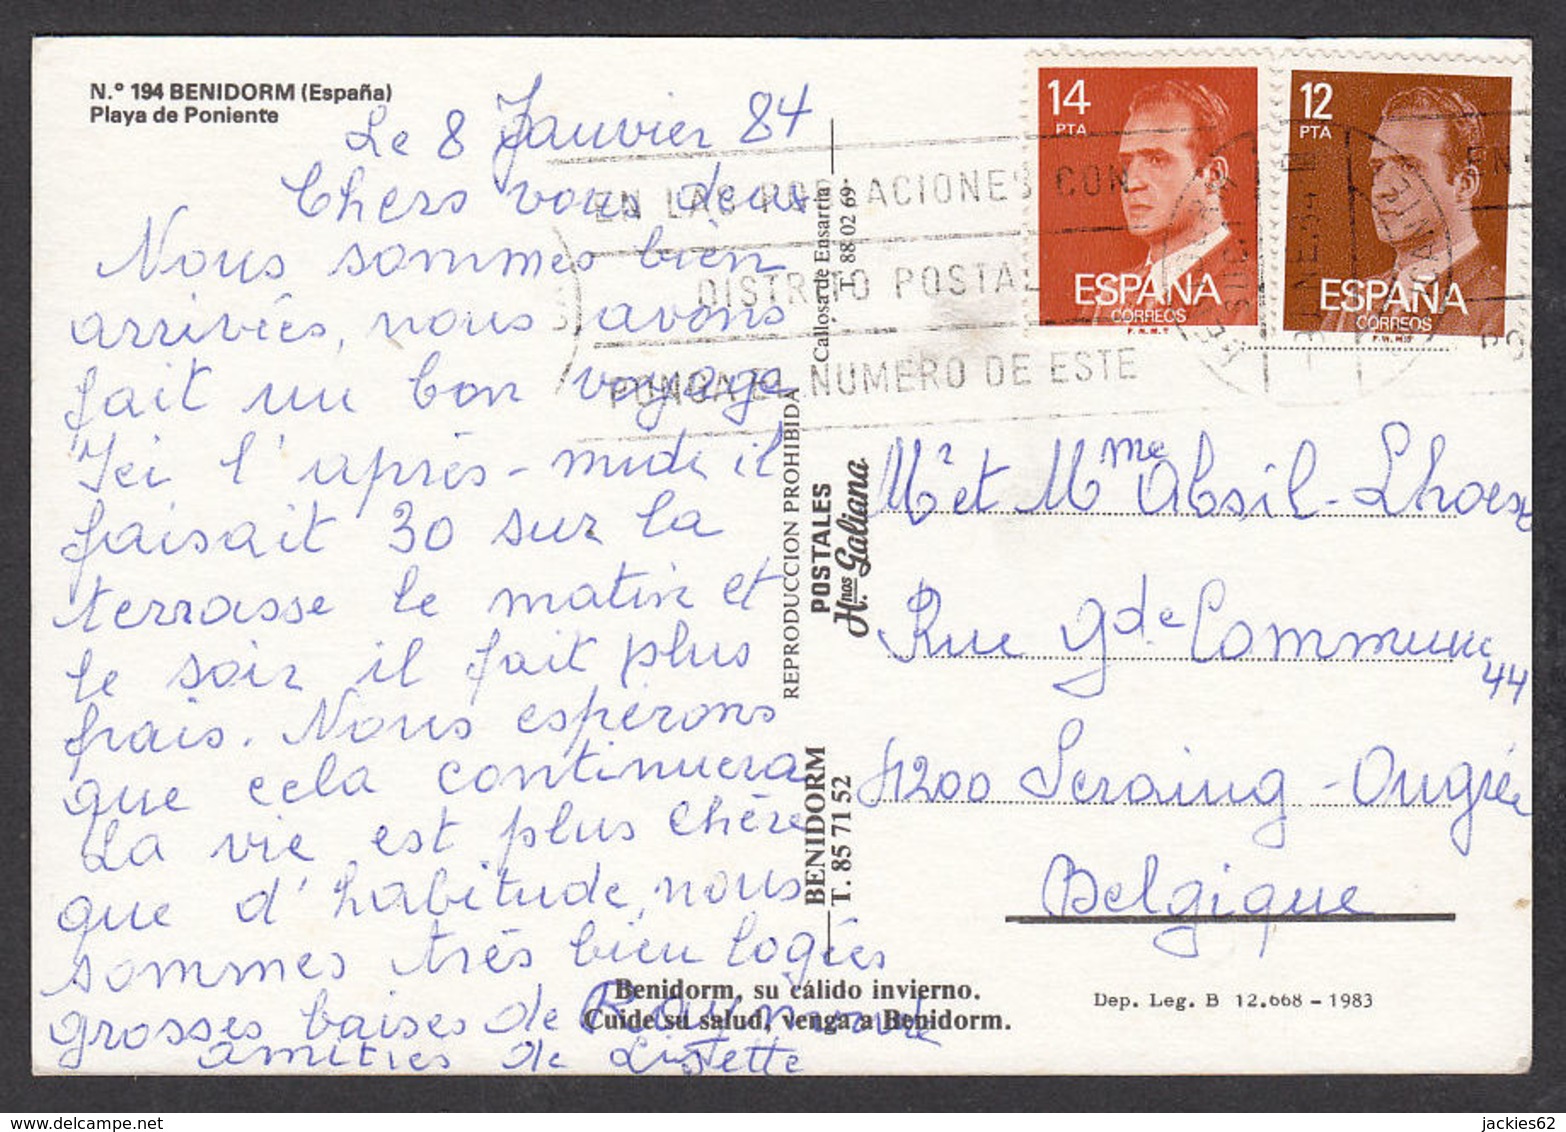 N.º 194 BENIDORM (España)
Playa de Poniente
Le 8 Janvier 84
Chers vous deux
Nous sommes bien
arrivées, nous avons
fait un bon voyage
Ici l'après-midi il
faisait 30 sur la
terrasse le matin et
le soir il fait plus
frais. Nous espérons
que cela continuera
La vie est plus chère
que d'habitude, nous
sommes très bien logées
grosses baises de Raymonde
amitiés de Lisette
Benidorm, su cálido invierno.
Cuide su salud, venga a Benidorm.
REPRODUCCION PROHIBIDA
POSTALES
Hnos Galiana
BENIDORM
T. 85 71 52
Callosa de Ensarriá
T. 88 02 69
14
PTA
ESPAÑA
CORREOS
F.N.M.T
12
PTA
ESPAÑA
CORREOS
F.N.M.T
EN LAS POBLACIONES CON
DISTRITO POSTAL
PONGA EL NUMERO DE ESTE
Mr et Mme Absil-Lhoest
Rue Gde Commune
44
4200 Seraing-Ougrée
Belgique
Dep. Leg. B 12.668 - 1983
jackies62